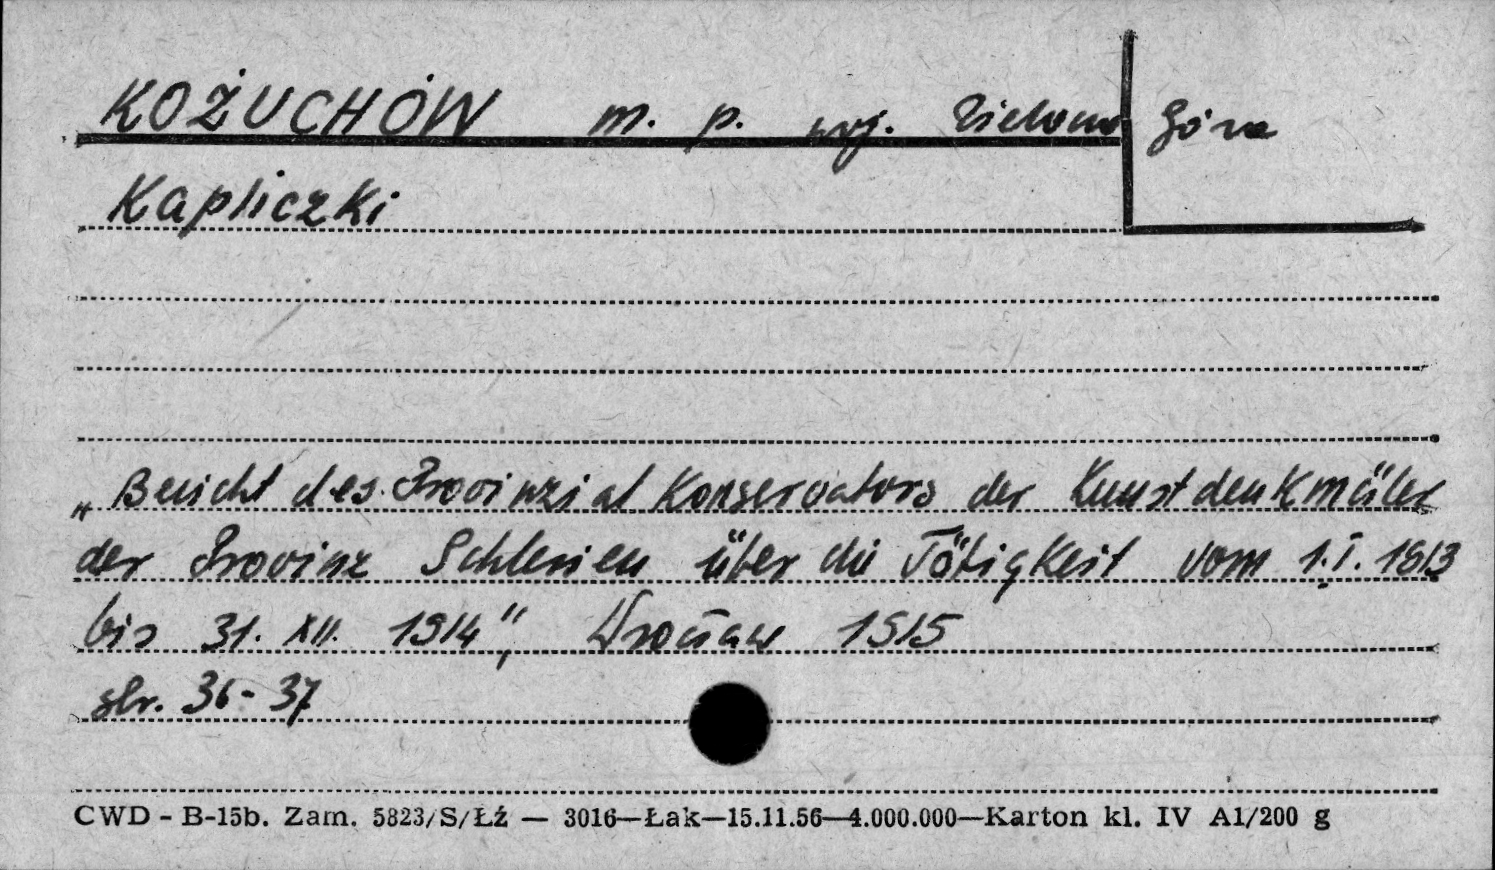 KOŻUCHÓW m. p. woj. Zielona Góra
Kapliczki
„Bericht des Provinzial Konservators der Kunstdenkmäler
der Provinz Schlesien über die Tätigkeit vom 1.I. 1913
bis 31. XII. 1914", Wrocław 1915
str. 36-37
CWD - B-15b. Zam. 5823/S/Łź — 3016—Łak—15.11.56—4.000.000—Karton kl. IV A1/200 g